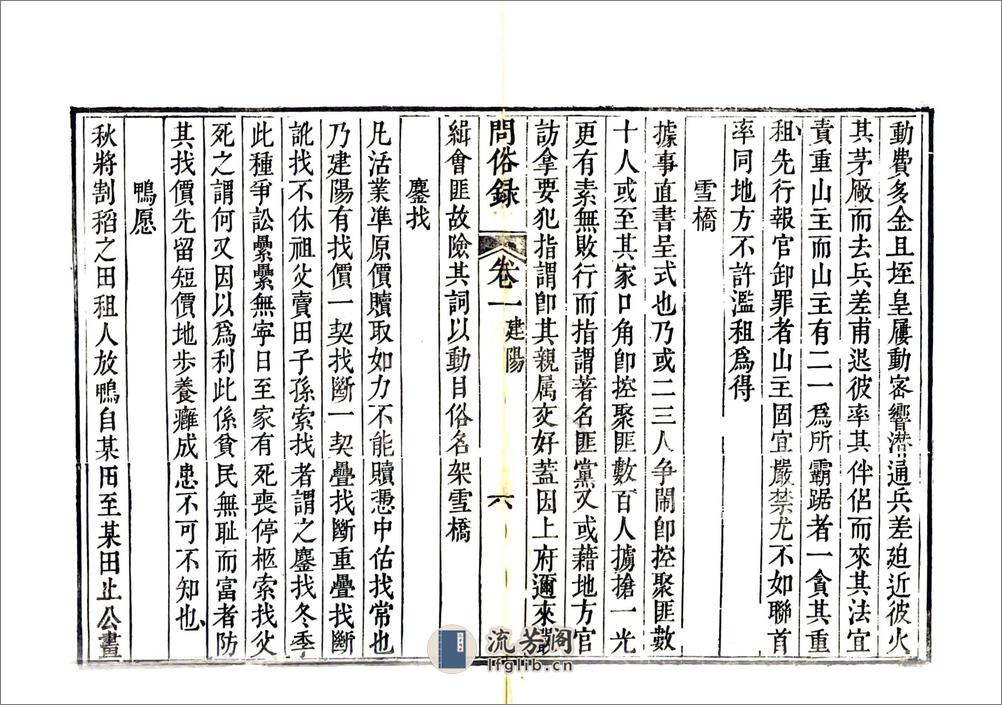 動費多金且堊皇屢動審響潜通兵差廹近彼火
其茅厰而去兵差甫退彼率其伴侣而來其法宜
責重山主而山主有二一爲所霸踞者一貪其重
租先行報官卸罪者山主固宜嚴禁尤不如聯首
率同地方不許濫租爲得
雪橋
據事直書呈式也乃或二三人争鬧卽控聚匪數
十人或至其家口角卽控聚匪數百人擄搶一光
更有素無敗行而指謂著名匪黨又或藉地方官
訪拿要犯指謂卽其親属交好蓋因上府邇來嚴
緝會匪故險其詞以動目俗名架雪橋
鏖找
凡活業凖原價贖取如力不能贖憑中估找常也
乃建陽有找價一契找斷一契疊找斷重疊找斷
訛找不休祖父賣田子孫索找者謂之鏖找冬季
此種爭訟纍纍無寧日至家有死喪停柩索找父
死之謂何又因以爲利此係貧民無耻而富者防
其找價先留短價地歩養癰成患不可不知也
鴨愿
秋將割稻之田租人放鴨自某田至某田止公畫
問俗録 卷一 建陽 六
流芳閣
lfglib.cn